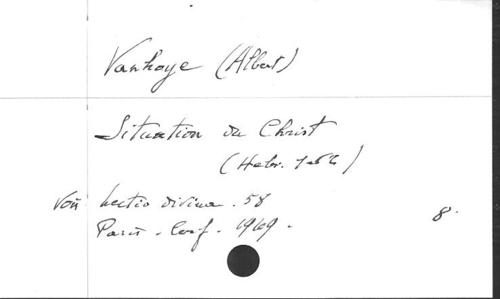 Vanhoye (Albert)
Situation du Christ
(Hebr. 1 et 2)
Voir Lectio divina. 58
Paris - Cerf - 1969.
8°